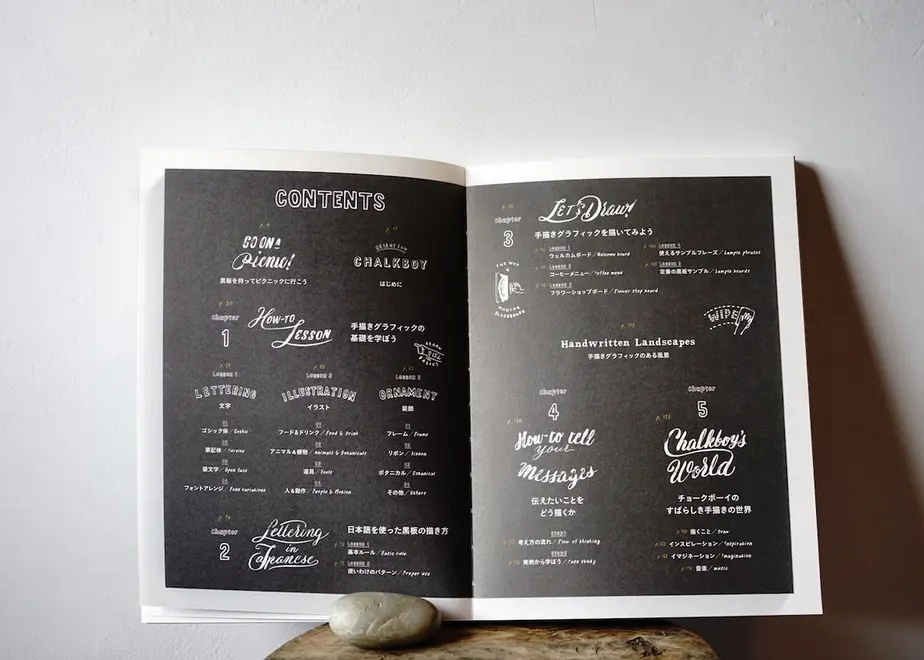 CONTENTS
GO ON A
Picnic!
黒板を持ってピクニックに行こう
CHALKBOY
はじめに
chapter
1
HOW-TO
LESSON
手描きグラフィックの
基礎を学ぼう
Lesson 1
LETTERING
文字
ゴシック体／Gothic
筆記体／Cursive
袋文字／Open face
フォントアレンジ／Font variations
Lesson 2
ILLUSTRATION
イラスト
フード&ドリンク／Food & Drink
アニマル&植物／Animals & Botanicals
道具／Tools
人&動作／People & Motion
Lesson 3
ORNAMENT
装飾
フレーム／Frame
リボン／Ribbon
ボタニカル／Botanical
その他／Others
chapter
2
Lettering
in
Japanese
日本語を使った黒板の描き方
Lesson 1
基本ルール／Basic rule
Lesson 2
使いわけのパターン／Proper use
chapter
3
LET'S Draw!
手描きグラフィックを描いてみよう
Lesson 1
ウェルカムボード／Welcome board
Lesson 2
コーヒーメニュー／Coffee menu
Lesson 3
フラワーショップボード／Flower shop board
Lesson 4
使えるサンプルフレーズ／Sample phrases
Lesson 5
定番の黒板サンプル／Sample boards
WIPE
Handwritten Landscapes
手描きグラフィックのある風景
chapter
4
How-to tell
your
Messages
伝えたいことを
どう描くか
STUDY
考え方の流れ／Flow of thinking
STUDY
実例から学ぼう／Case study
chapter
5
Chalkboy's
World
チョークボーイの
すばらしき手描きの世界
描くこと／Draw
インスピレーション／Inspiration
イマジネーション／Imagination
音楽／music